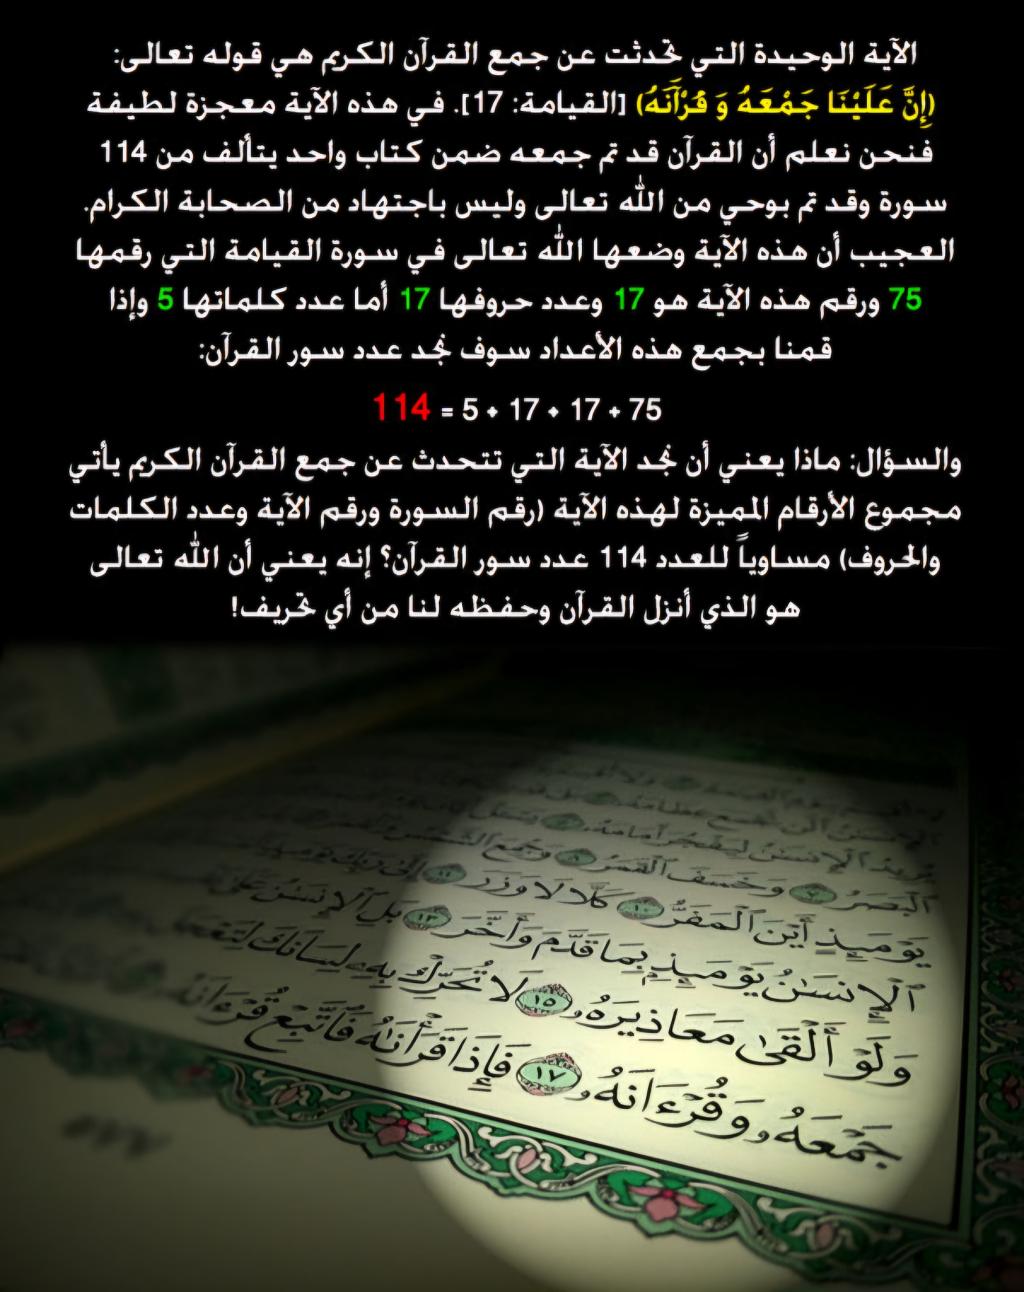 الآية الوحيدة التي تحدثت عن جمع القرآن الكريم هي قوله تعالى:
(إِنَّ عَلَيْنَا جَمْعَهُ وَ قُرْآَنَهُ) [القيامة: 17]. في هذه الآية معجزة لطيفة
فنحن نعلم أن القرآن قد تم جمعه ضمن كتاب واحد يتألف من 114
سورة وقد تم بوحي من الله تعالى وليس باجتهاد من الصحابة الكرام.
العجيب أن هذه الآية وضعها الله تعالى في سورة القيامة التي رقمها
75 ورقم هذه الآية هو 17 وعدد حروفها 17 أما عدد كلماتها 5 وإذا
قمنا بجمع هذه الأعداد سوف نجد عدد سور القرآن:
75 + 17 + 17 + 5 = 114
والسؤال: ماذا يعني أن نجد الآية التي تتحدث عن جمع القرآن الكريم يأتي
مجموع الأرقام المميزة لهذه الآية (رقم السورة ورقم الآية وعدد الكلمات
والحروف) مساوياً للعدد 114 عدد سور القرآن؟ إنه يعني أن الله تعالى
هو الذي أنزل القرآن وحفظه لنا من أي تحريف!
ٱلْبَصَرُ ٧ وَخَسَفَ ٱلْقَمَرُ ٨ وَجُمِعَ
يَوْمَئِذٍ أَيْنَ ٱلْمَفَرُّ ١٠ كَلَّا لَا وَزَرَ ١١
ٱلْإِنسَٰنُ يَوْمَئِذٍ بِمَا قَدَّمَ وَأَخَّرَ ١٣ بَلِ ٱلْإِنسَٰنُ عَلَىٰ
وَلَوْ أَلْقَىٰ مَعَاذِيرَهُۥ ١٥ لَا تُحَرِّكْ بِهِۦ لِسَانَكَ لِتَعْجَلَ
جَمْعَهُۥ وَقُرْءَانَهُۥ ١٧ فَإِذَا قَرَأْنَٰهُ فَٱتَّبِعْ قُرْءَانَهُۥ